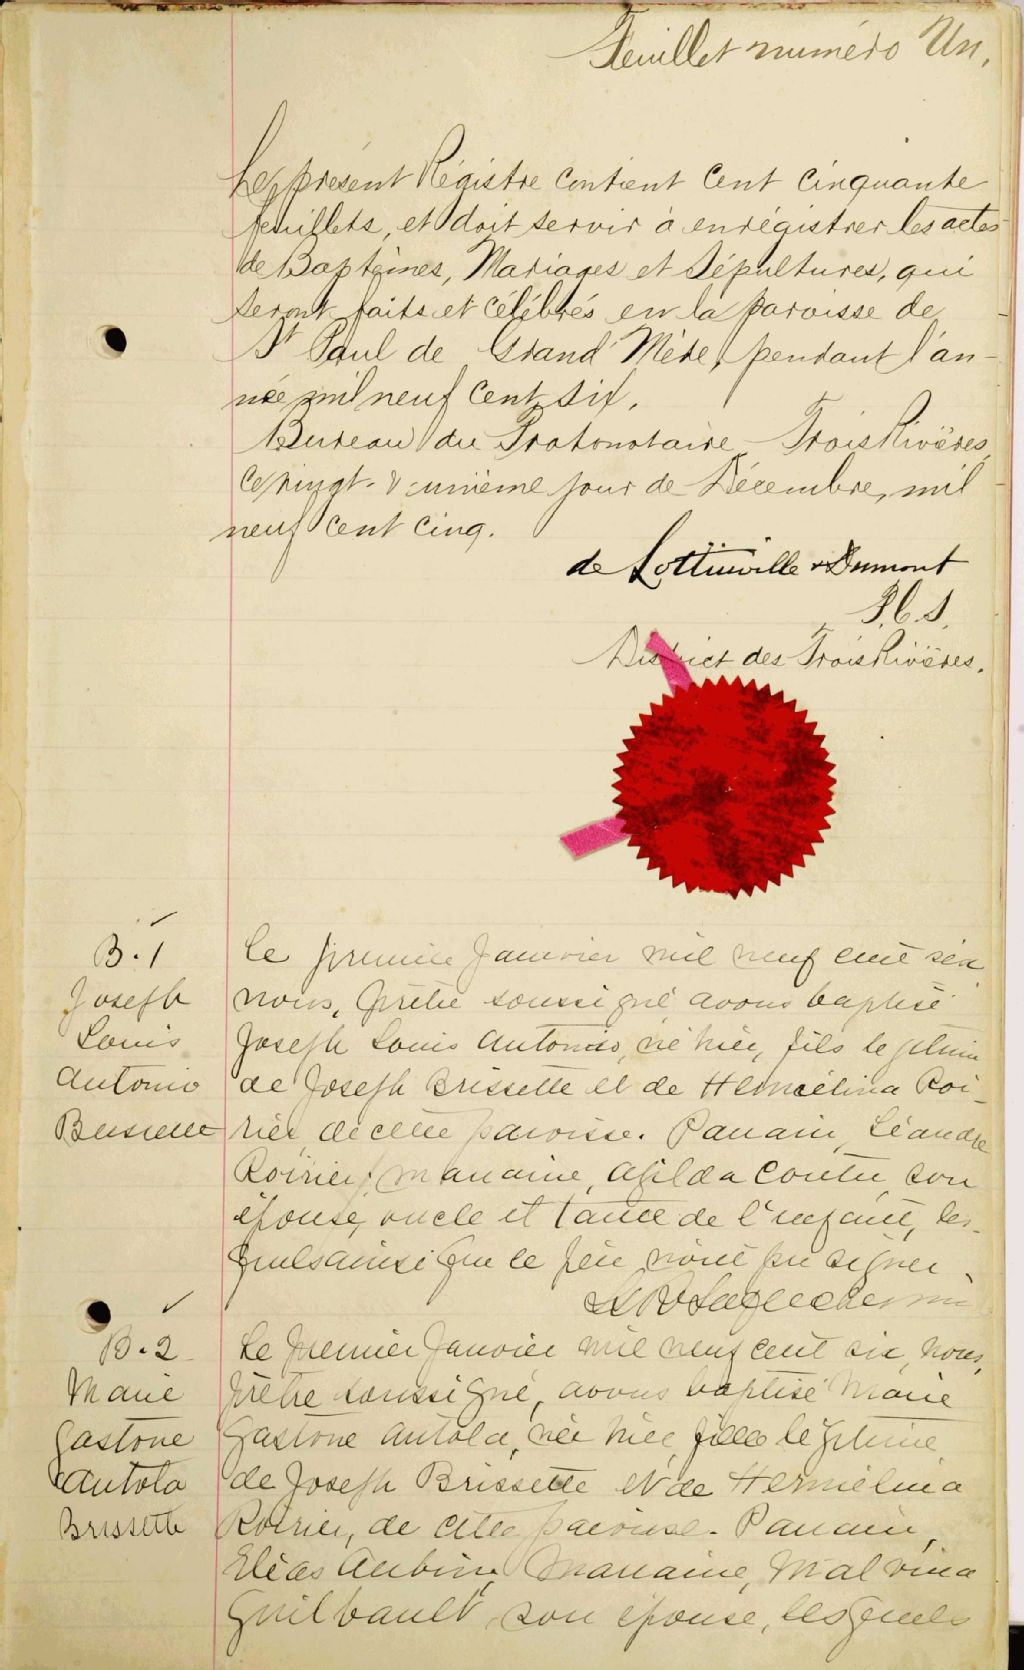 Feuillet numéro Un.
Le présent Régistre contient cent cinquante
feuillets, et doit servir à enrégistrer les actes
de Baptêmes, Mariages et Sépultures, qui
seront faits et célébrés en la paroisse de
St Paul de Grand'Mère, pendant l'an-
née mil neuf cent six.
Bureau du Protonotaire Trois Rivières,
ce vingt & unième jour de Décembre, mil
neuf cent cinq.
de Lottinville & Dumont
P.C.S.
District des Trois Rivières.
B.1
Joseph
Louis
Antonio
Brissette
Le premier Janvier mil neuf cent six
nous, prêtre soussigné avons baptisé
Joseph Louis Antonio, né hier, fils légitime
de Joseph Brissette et de Herméline Poi-
rier de cette paroisse. Parrain, Léandre
Poirier; marraine, Exilda Coutu son
épouse, oncle et tante de l'enfant, les-
quels ainsi que le père n'ont pu signer.
B.2
Marie
Gastone
Antola
Brissette
Le premier Janvier mil neuf cent six, nous,
prêtre soussigné, avons baptisé Marie
Gastone Antola, née hier, fille légitime
de Joseph Brissette et de Hermélina
Poirier, de cette paroisse. Parrain,
Elias Aubin, Marraine, Malvina
Guilbault, son épouse, lesquels